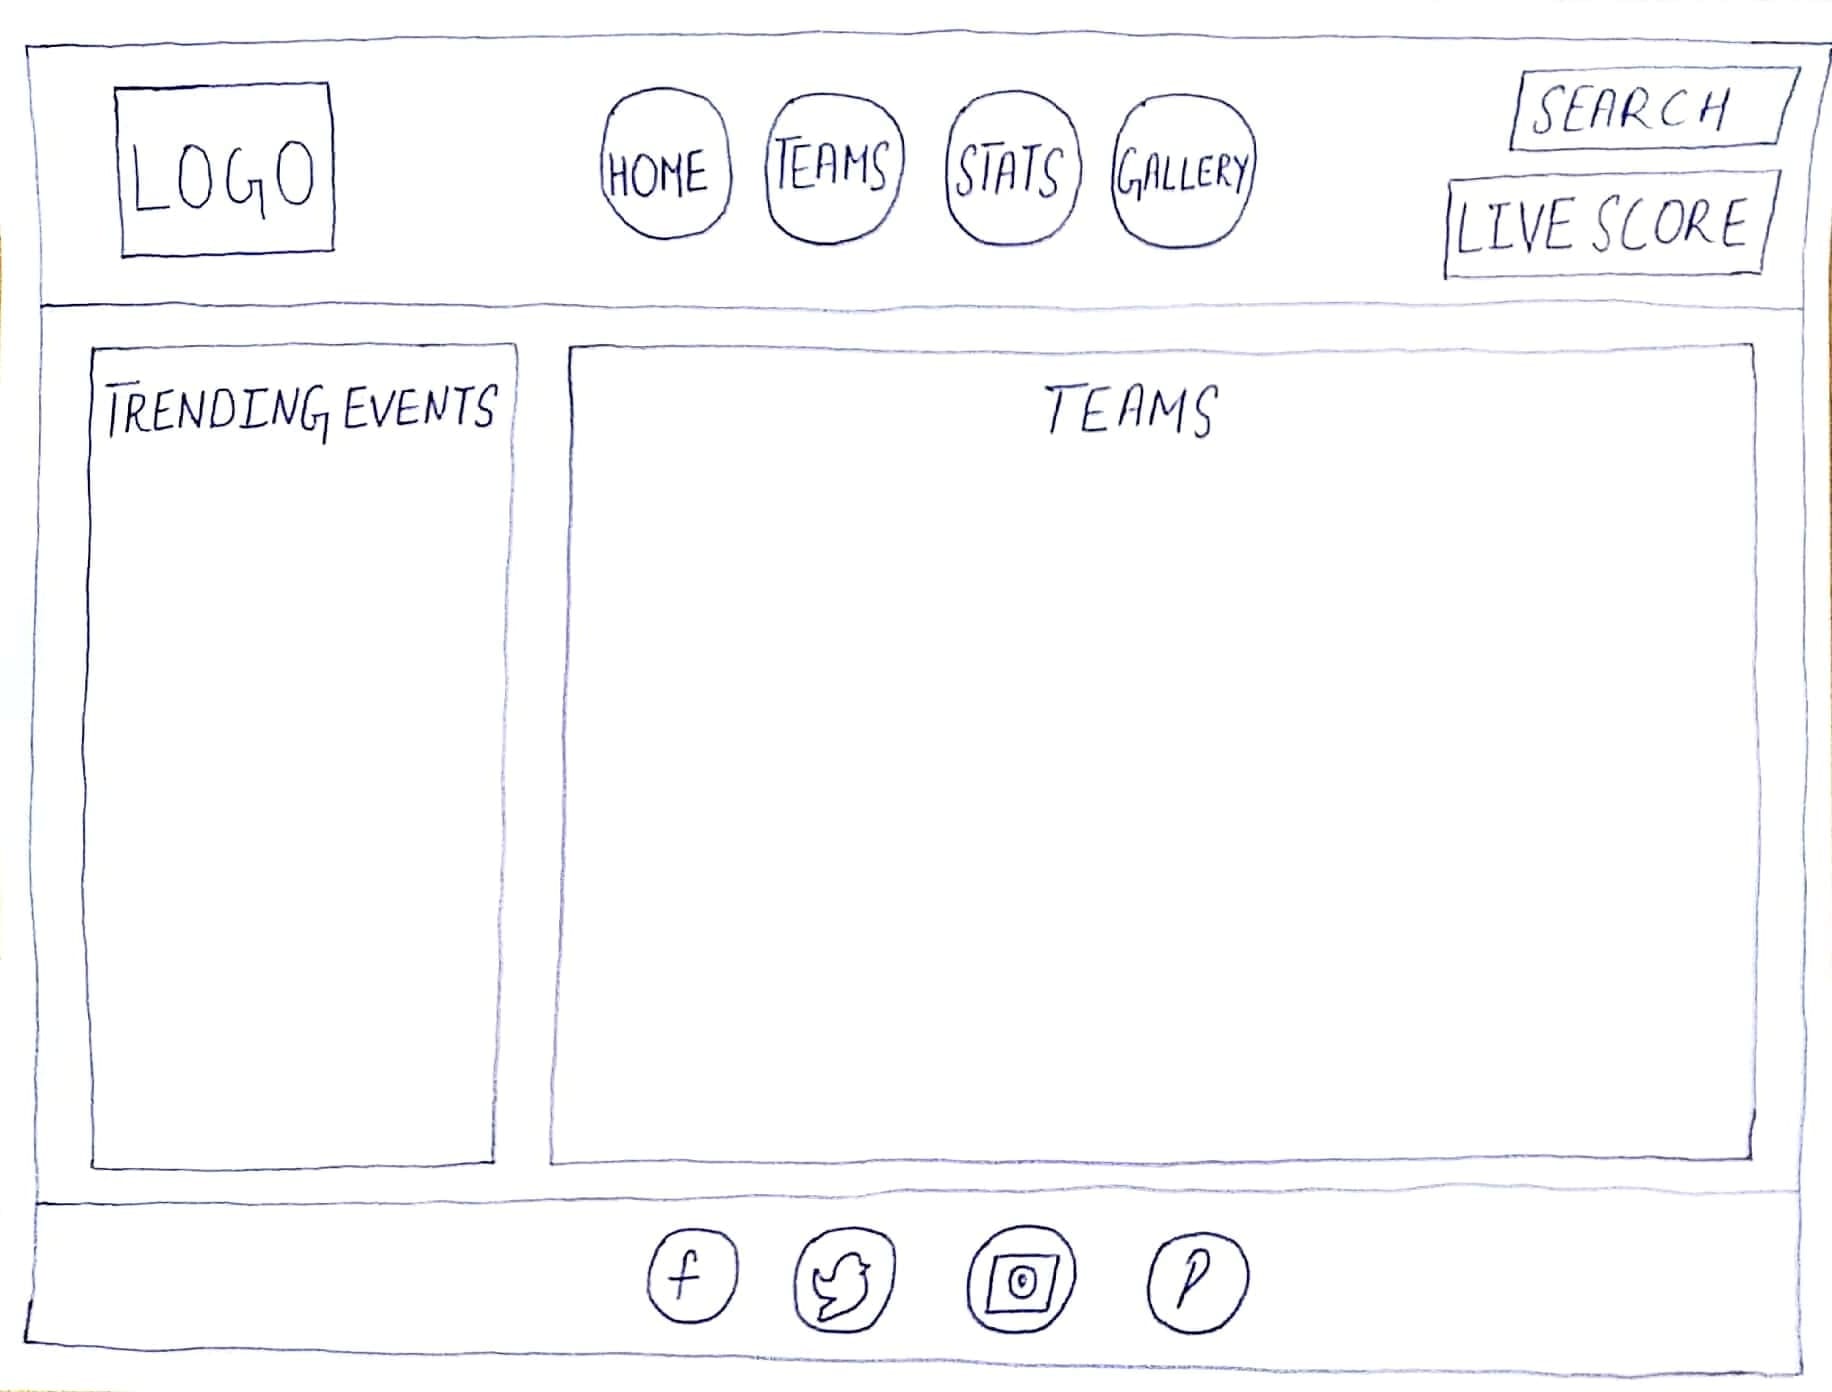 LOGO
HOME
TEAMS
STATS
GALLERY
SEARCH
LIVE SCORE
TRENDING EVENTS
TEAMS
f
p